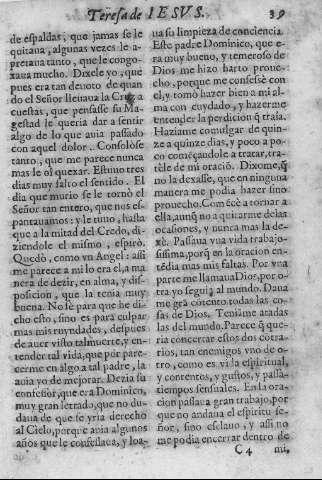 Teresa de IESVS. 39
de espaldas; que jamas se le
quitaua, algunas vezes le a-
pretaua tanto, que le congo-
xaua mucho. Dixele yo, que
pues era tan deuoto de quan-
do el Señor lleuaua la Cruz a
cuestas, que pensasse su Ma-
gestad le queria dar a sentir
algo de lo que auia passado
con aquel dolor. Consolòse
tanto, que me parece nunca
mas le oì quexar. Estuuo tres
dias muy falto el sentido. El
dia que murio se le tornò el
Señor tan entero, que nos es-
pantauamos: y le tuuo, hasta
que a la mitad del Credo, di-
ziendole el mismo, espirò.
Quedò, como vn Angel: assi
me parece a mi lo era el, a ma
nera de dezir, en alma, y dis-
posicion, que la tenia muy
buena. No sè para que he di-
cho esto, sino es para culpar
mas mis ruyndades, despues
de auer visto tal muerte, y en-
tender tal vida, que por pare-
cerme en algo a tal padre, la
auia yo de mejorar. Dezia su
confessor, que era Dominico,
muy gran letrado, que no du-
daua de que se yria derecho
al Cielo, porque auia algunos
años que le confessaua, y loa-
ua su limpieza de conciencia.
Este padre Dominico, que e-
ra muy bueno, y temeroso de
Dios me hizo harto proue-
cho, porque me confessè con
el, y tomò hazer bien a mi al-
ma con cuydado, y hazerme
entender la perdiciõ q̃ traìa.
Haziame comulgar de quin-
ze a quinze dias, y poco a po-
co començandole a tratar, tra-
tèle de mi oraciõ. Dixome, q̃
no la dexasse, que en ninguna
manera me podia hazer sino
prouecho. Comẽcè a tornar a
ella, aunq̃ no a quitarme de las
ocasiones, y nunca mas la de-
xè. Passaua vna vida trabajo-
sissima, porq̃ en la oracion en-
tẽdia mas mis faltas. Por vna
parte me llamaua Dios, por o-
tra yo seguia al mundo. Daua
me grã cõtento todas las co-
sas de Dios. Tenianme atadas
las del mundo. Parece q̃ que-
ria concertar estos dos cotra-
rios, tan enemigos vno de o-
tro, como es vida espiritual,
y contentos, y gustos, y passa-
tiempos sensuales. En la ora-
cion passaua gran trabajo, por
que no andaua el espiritu se-
ñor, sino esclauo, y assi no
me podia encerrar dentro de
C 4 mi,